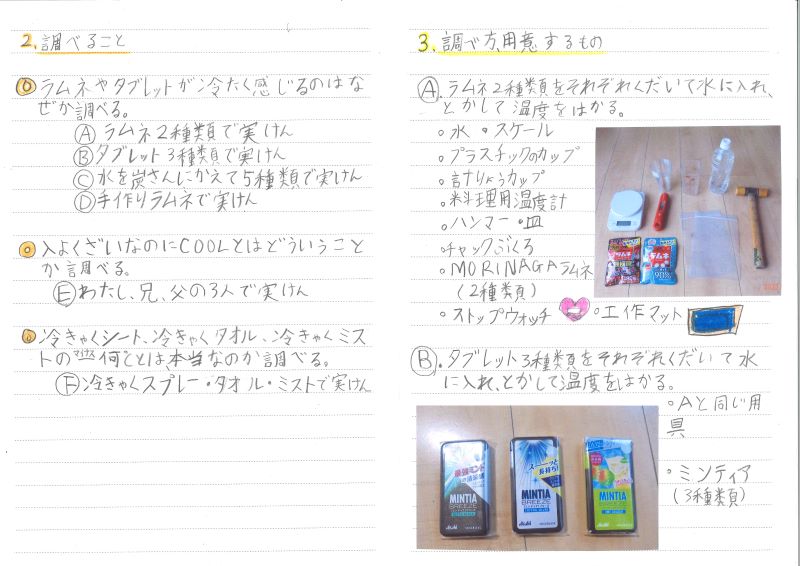 2. 調べること
◎ラムネやタブレットが冷たく感じるのはな
ぜか調べる。
Ⓐラムネ2種類で実けん
Ⓑタブレット3種類で実けん
Ⓒ水を炭さんにかえて5種類で実けん
Ⓓ手作りラムネで実けん
◎入よくざいなのにCOOLとはどういうこと
か調べる。
Ⓔわたし、兄、父の3人で実けん
◎冷きゃくシート、冷きゃくタオル、冷きゃくミス
トのマイナス何℃とは、本当なのか調べる。
Ⓕ冷きゃくスプレー・タオル・ミストで実けん
3. 調べ方、用意するもの
Ⓐ. ラムネ2種類をそれぞれくだいて水に入れ、
とかして温度をはかる。
◦水 ◦スケール
◦プラスチックのカップ
◦計りょうカップ
◦料理用温度計
◦ハンマー・皿
◦チャックぶくろ
◦MORINAGAラムネ
(2種類)
◦ストップウォッチ ◦工作マット
ラムネ
ラムネ
90%
Ⓑ. タブレット3種類をそれぞれくだいて水
に入れ、とかして温度をはかる。
◦Aと同じ用
具
◦ミンティア
(3種類)
最強ミント
の清涼感
MINTIA
BREEZE
Asahi
ス――ッと
長持ち!
MINTIA
BREEZE
Asahi
MINTIA
BREEZE
Asahi